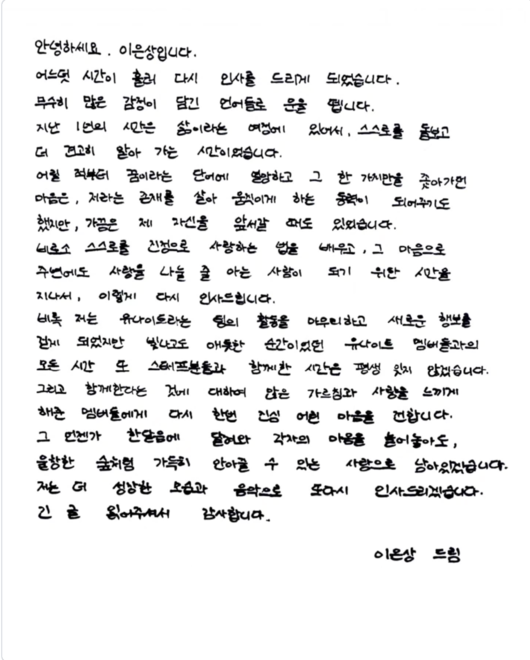 안녕하세요. 이은상입니다.
어느덧 시간이 흘러 다시 인사를 드리게 되었습니다.
무수히 많은 감정이 담긴 언어들로 운을 뗍니다.
지난 1년의 시간은 삶이라는 여정에 있어서, 스스로를 돌보고
더 견고히 알아 가는 시간이었습니다.
어릴 적부터 꿈이라는 단어에 열망하고 그 한 가지만을 좇아가던
마음은, 저라는 존재를 살아 움직이게 하는 동력이 되어주기도
했지만, 가끔은 제 자신을 앞서갈 때도 있었습니다.
비로소 스스로를 진정으로 사랑하는 법을 배우고, 그 마음으로
주변에도 사랑을 나눌 줄 아는 사람이 되기 위한 시간을
지나서, 이렇게 다시 인사드립니다.
비록 저는 유나이트라는 팀의 활동을 마무리하고 새로운 행보를
걷게 되었지만 빛나고도 애틋한 순간이었던 유나이트 멤버들과의
모든 시간 또 스태프분들과 함께한 시간은 평생 잊지 않겠습니다.
그리고 함께한다는 것에 대하여 많은 가르침과 사랑을 느끼게
해준 멤버들에게 다시 한번 진심 어린 마음을 전합니다.
그 언젠가 한달음에 달려와 각자의 마음을 털어놓아도,
울창한 숲처럼 가득히 안아줄 수 있는 사람으로 남아있겠습니다.
저는 더 성장한 모습과 음악으로 또다시 인사드리겠습니다.
긴 글 읽어주셔서 감사합니다.
이은상 드림